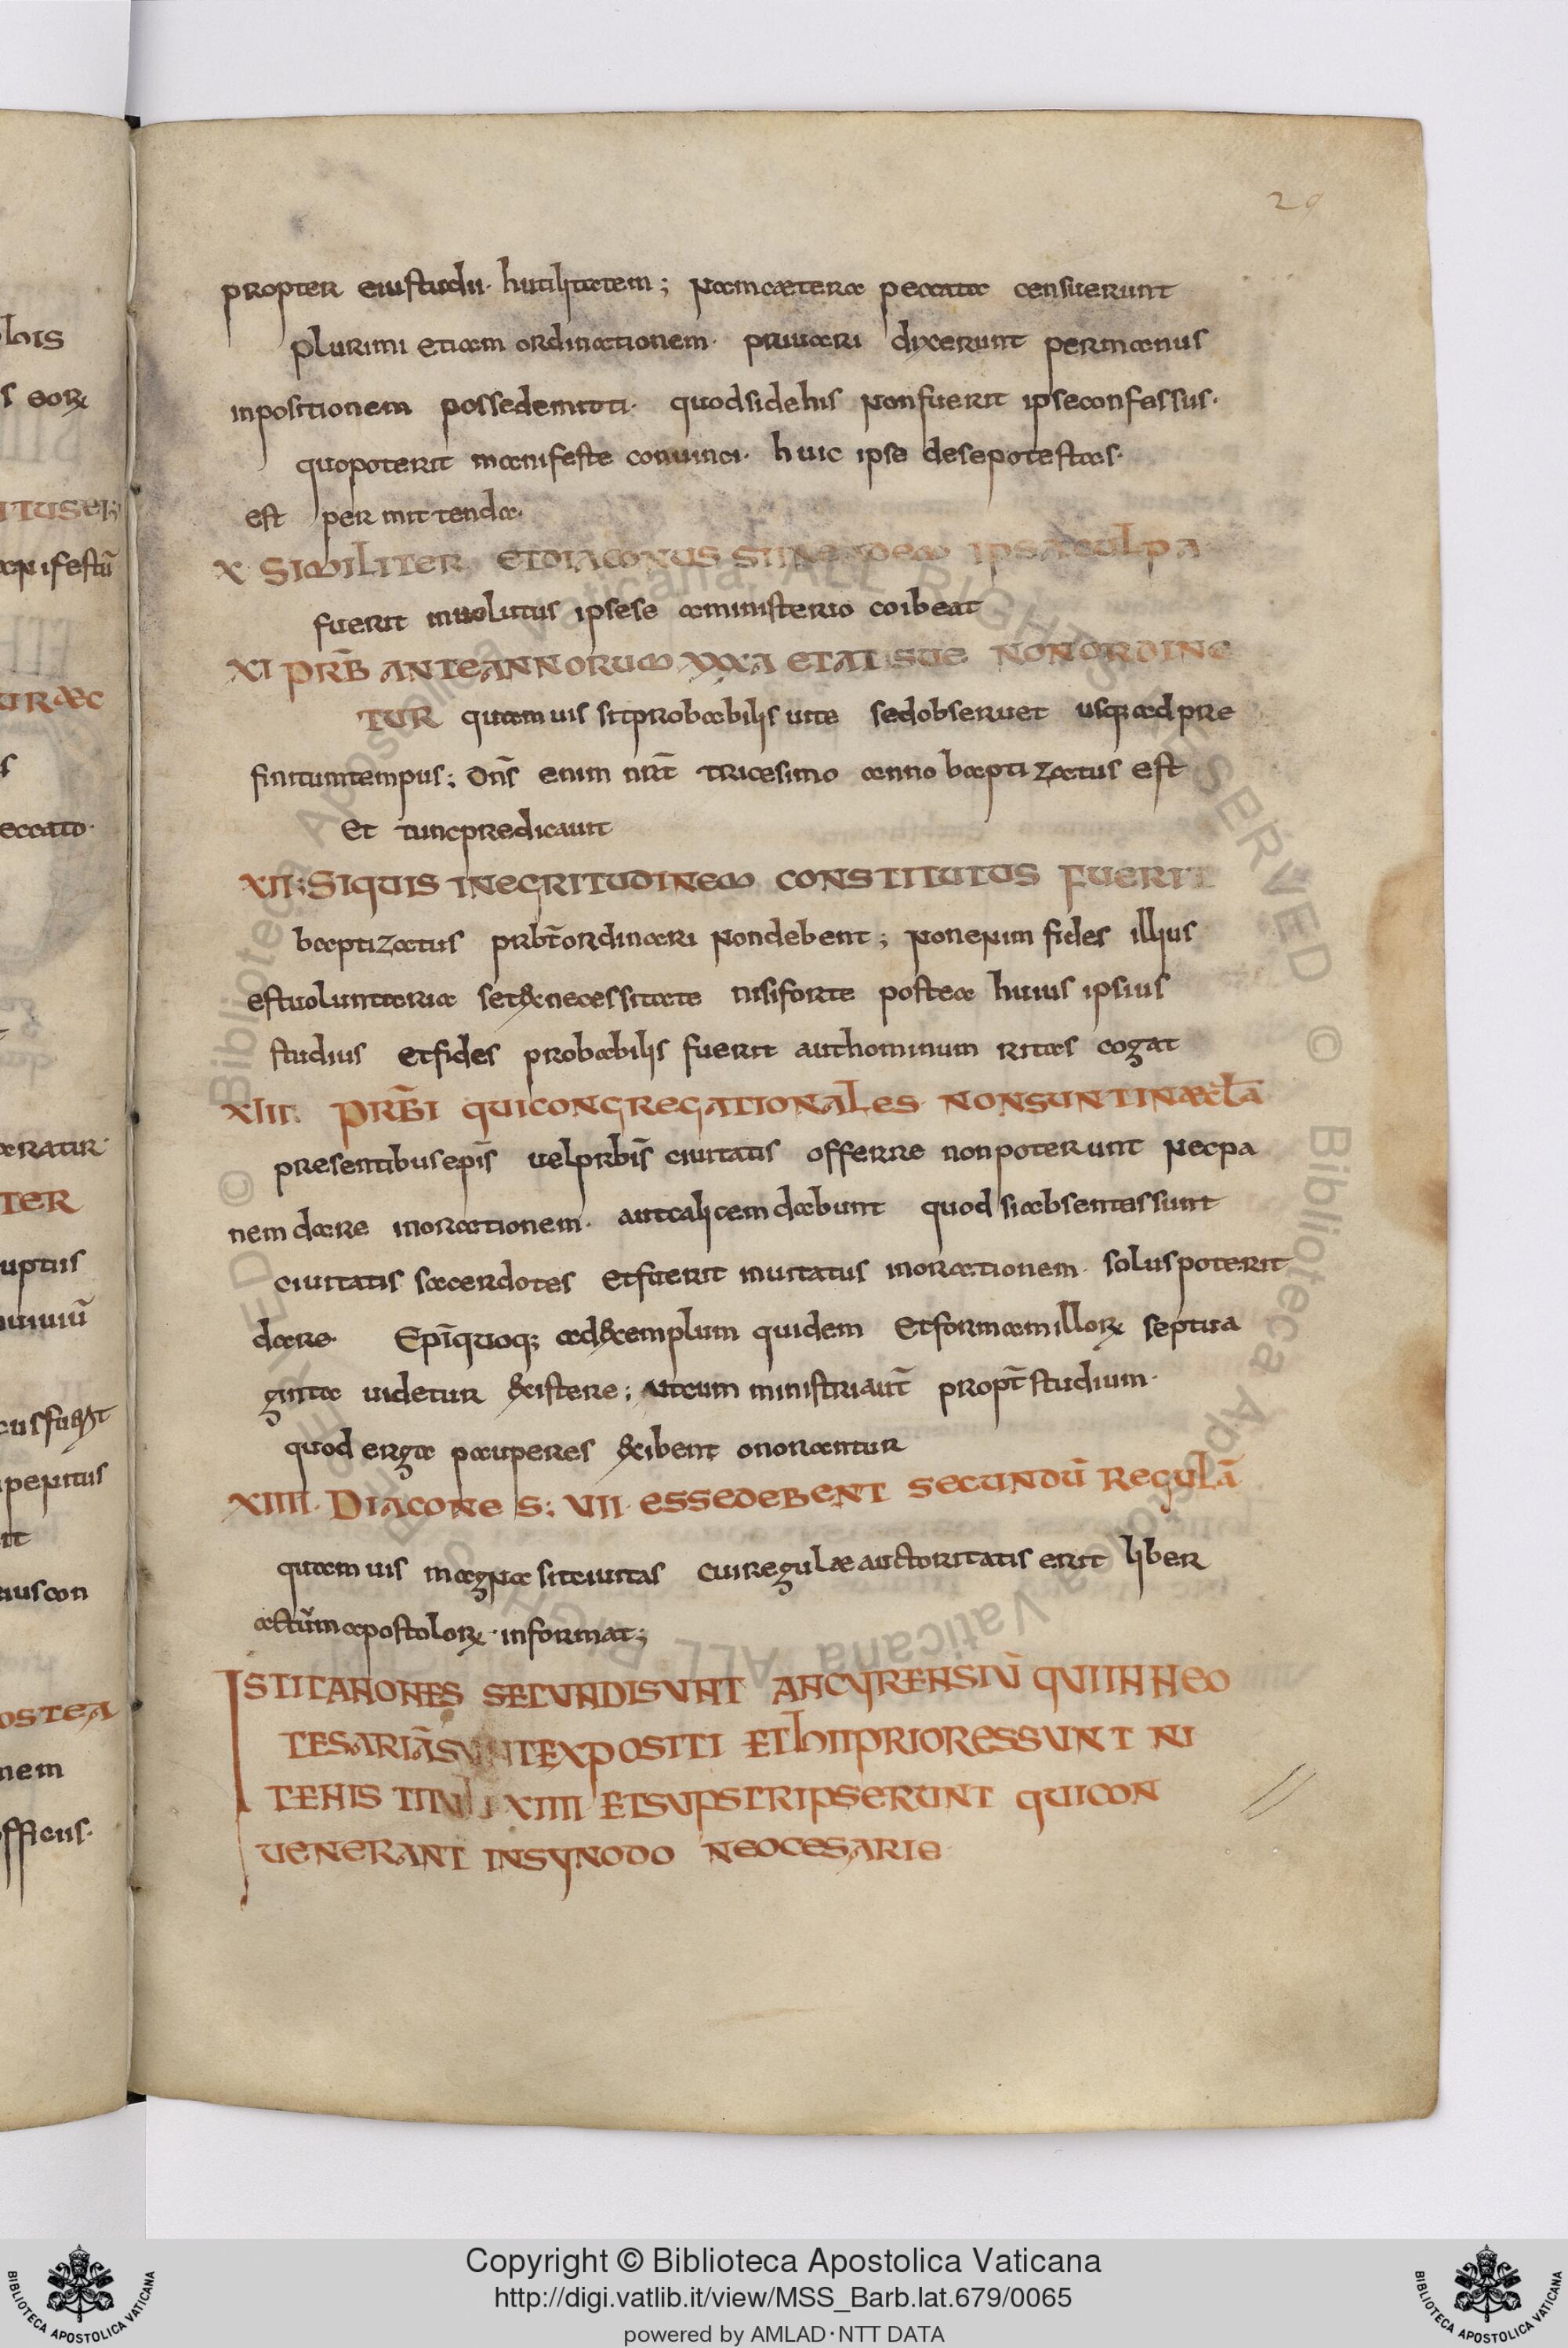 29
propter eiustudii· hutilitatem; Nam cætera peccata censuerunt
plurimi etiam ordinationem· priuari dixerunt per manus
inpositionem possedemtoti· quod si de his non fuerit ipse confessus·
quo poterit manifeste conuinci· huic ipse de se potestas·
est per mittenda·
X SIMILITER ET DIACONUS SI IN EODEM IPSA CULPA
fuerit inuolutus ipse se a ministerio coibeat
XI PRB̄ ANTE ANNORUM XXX A ETATI SUE NON ORDINE
TUR quam uis sit probabilis uite sed obseruet usq; ad pre
finitum tempus; Dn̄s enim nr̄t tricesimo anno baptizatus est
et tunc predicauit
XII; SI QUIS IN EGRITUDINEM CONSTITUTUS FUERIT
baptizatus prbt̄ ordinari non debent; Non enim fides illius
est uoluntaria set ex necessitate nisi forte postea huius ipsius
studius et fides probabilis fuerit aut hominum ritas cogat
XIII· PRB̄I QUI CONGREGATIONALES NON SUNT IN ÆCL̄A
presentibus ep̄is uel prb̄is ciuitatis offerre non poterunt Nec pa
nem dare in oratione m· aut calicem dabunt quod si absentes sunt
ciuitatis sacerdotes et fuerit inuitatus in orationem· solus poterit
dare· Ep̄i quoq; ad exemplum quidem et formam illorꝝ septua
ginta uidetur existere; ut cum ministri aut̄ propt̄ studium·
quod erga pauperes exibent onorantur
XIIII· DIACONES: VII· ESSE DEBENT SECUNDŪ REGULĀ
quam uis magna sit ciuitas cui regulæ auctoritatis erit liber
actūm apostolorꝝ· informat;
ISTI CANONES SECUNDI SUNT ANCYRENSIŪ QUI IN NEO
CESARIĀ SUNT EXPOSITI ET HII PRIORES SUNT NI
CENIS TITULI XIIII ET SUPSCRIPSERUNT QUI CON
UENERANT IN SYNODO NEOCESARIE·
Copyright © Biblioteca Apostolica Vaticana
http://digi.vatlib.it/view/MSS_Barb.lat.679/0065
powered by AMLAD·NTT DATA